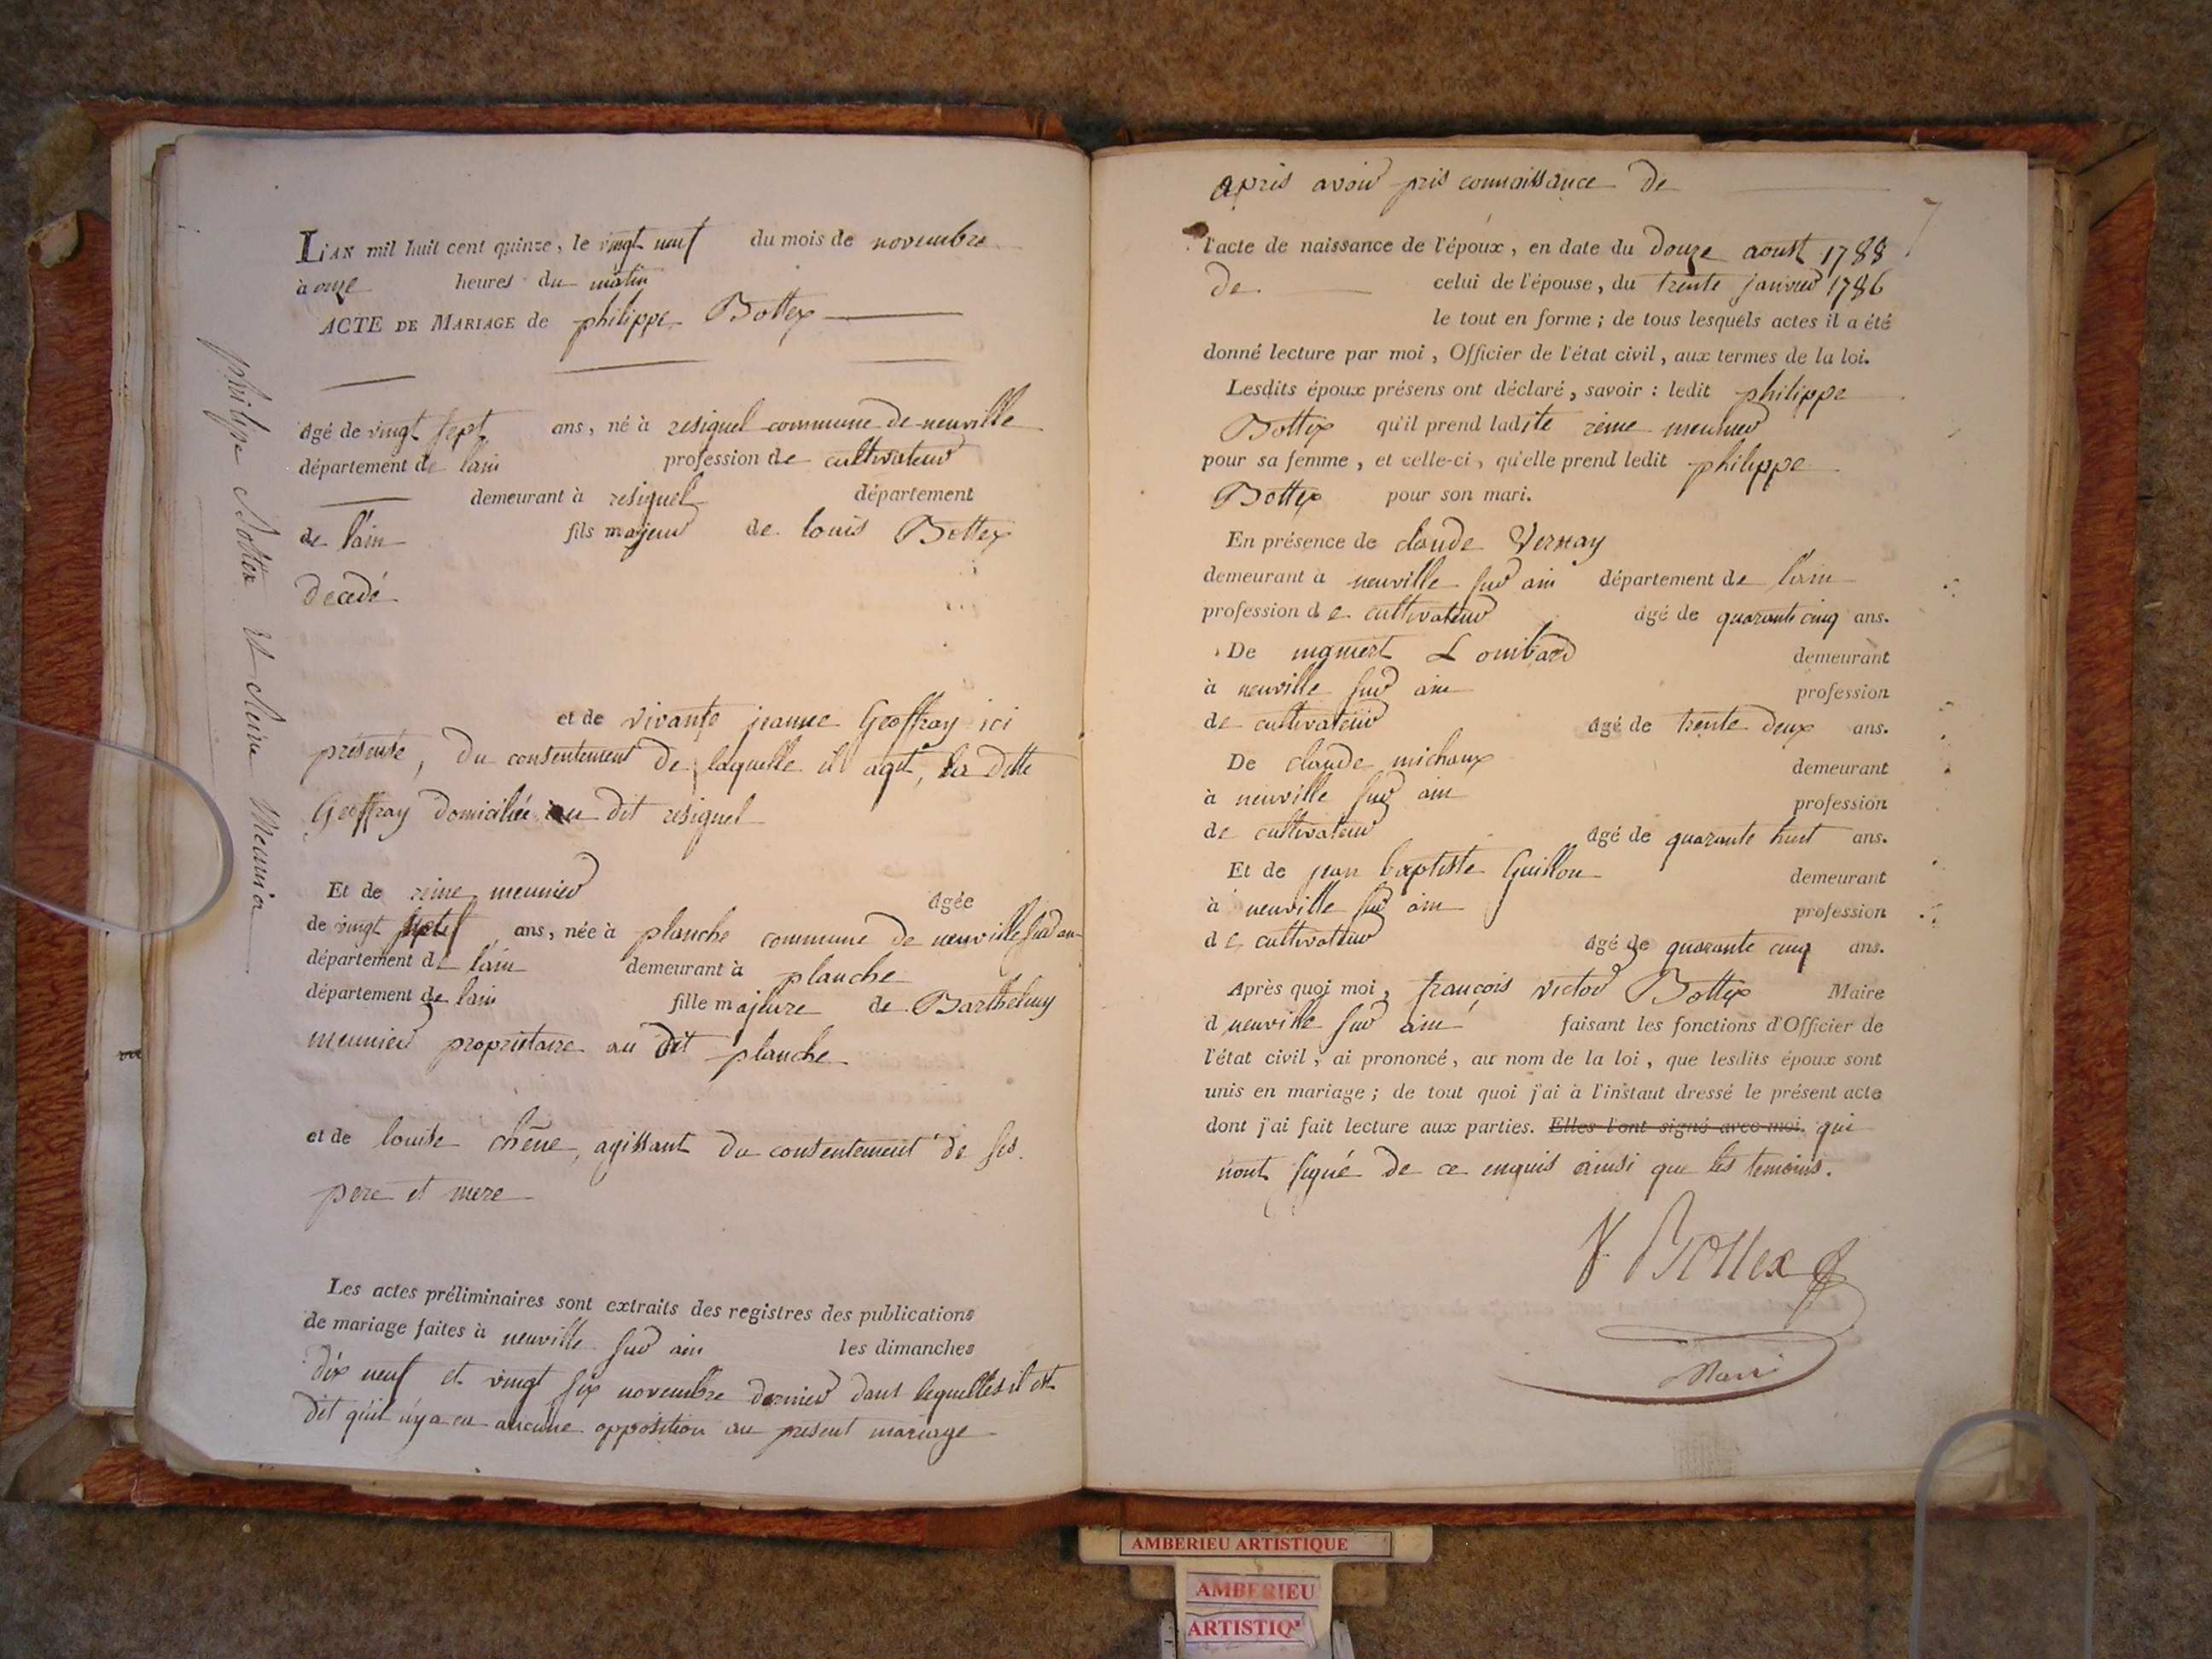 philippe Bottex Et Reine Meunier
L'AN mil huit cent quinze, le vingt neuf du mois de novembre
à onze heures du matin
ACTE DE MARIAGE de philippe Bottex
âgé de vingt sept ans, né à resignel commune de neuville
département de l'ain profession de cultivateur
demeurant à resignel département
de l'ain fils majeur de louis Bottex
décedé
et de vivante jeanne Geoffray ici
présente, du consentement de laquelle il agit, la ditte
Geoffray domiciliée au dit resignel
Et de reine meunier âgée
de vingt ans, née à planche commune de neuville sur ain
département de l'ain demeurant à planche
département de l'ain fille majeure de Barthelmy
meunier propriétaire au dit planche
et de louise chêne, agissant du consentement de ses
pere et mere
Les actes préliminaires sont extraits des registres des publications
de mariage faites à neuville sur ain les dimanches
dix neuf et vingt six novembre dernier dans lequelles il est
dit qu'il n'y a eu aucune opposition au présent mariage
après avoir pris connaissance de
7
l'acte de naissance de l'époux, en date du douze aoust 1788
de celui de l'épouse, du trente janvier 1786
le tout en forme ; de tous lesquels actes il a été
donné lecture par moi, Officier de l'état civil, aux termes de la loi.
Lesdits époux présens ont déclaré, savoir : ledit philippe
Bottex qu'il prend ladite reine meunier
pour sa femme, et celle-ci, qu'elle prend ledit philippe
Bottex pour son mari.
En présence de claude Vernay
demeurant à neuville sur ain département de l'ain
profession de cultivateur âgé de quarante cinq ans.
De Lombard demeurant
à neuville sur ain profession
de cultivateur âgé de trente deux ans.
De claude michaux demeurant
à neuville sur ain profession
de cultivateur âgé de quarante huit ans.
Et de jean baptiste Guillon demeurant
à neuville sur ain profession
de cultivateur âgé de quarante cinq ans.
Après quoi moi, françois victor Bottex Maire
d neuville sur ain faisant les fonctions d'Officier de
l'état civil, ai prononcé, au nom de la loi, que lesdits époux sont
unis en mariage ; de tout quoi j'ai à l'instant dressé le présent acte
dont j'ai fait lecture aux parties. Elles l'ont signé avec moi. qui
n'ont signé de ce enquis ainsi que les temoins.
V Bottex
Maire
AMBERIEU ARTISTIQUE
AMBERIEU
ARTISTIQ